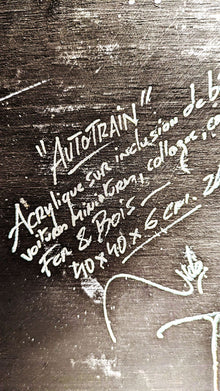 "AUTOTRAIN"
Acrylique sur inclusion de b
voitures miniatures, collage, c
Fer & Bois
40 x 40 x 6 cm. 2